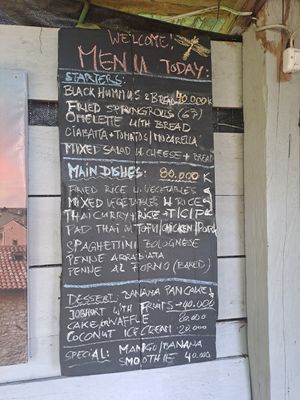 WELCOME!
MENU TODAY:
STARTERS:
BLACK HUMMUS & BREAD 40.000K
FRIED SPRINGROLLS (67)
OMELETTE WITH BREAD
CIABATTA + TOMATOS / MOZARELLA
MIXED SALAD W CHEESE + BREAD
MAIN DISHES: 80.000 K
FRIED RICE W VEGETABLES
MIXED VEGETABLES W RICE
THAI CURRY + RICE
PAD THAI W TOFU/CHICKEN/PORK
SPAGHETTINI BOLOGNESE
PENNE ARRABIATA
PENNE AL FORNO (BAKED)
DESSERT: BANANA PANCAKE
JOGHURT WITH FRUITS 40.000
CAKE WAFFLE
COCONUT ICE CREAM
SPECIAL: MANGO/BANANA
SMOOTHIE 40.000